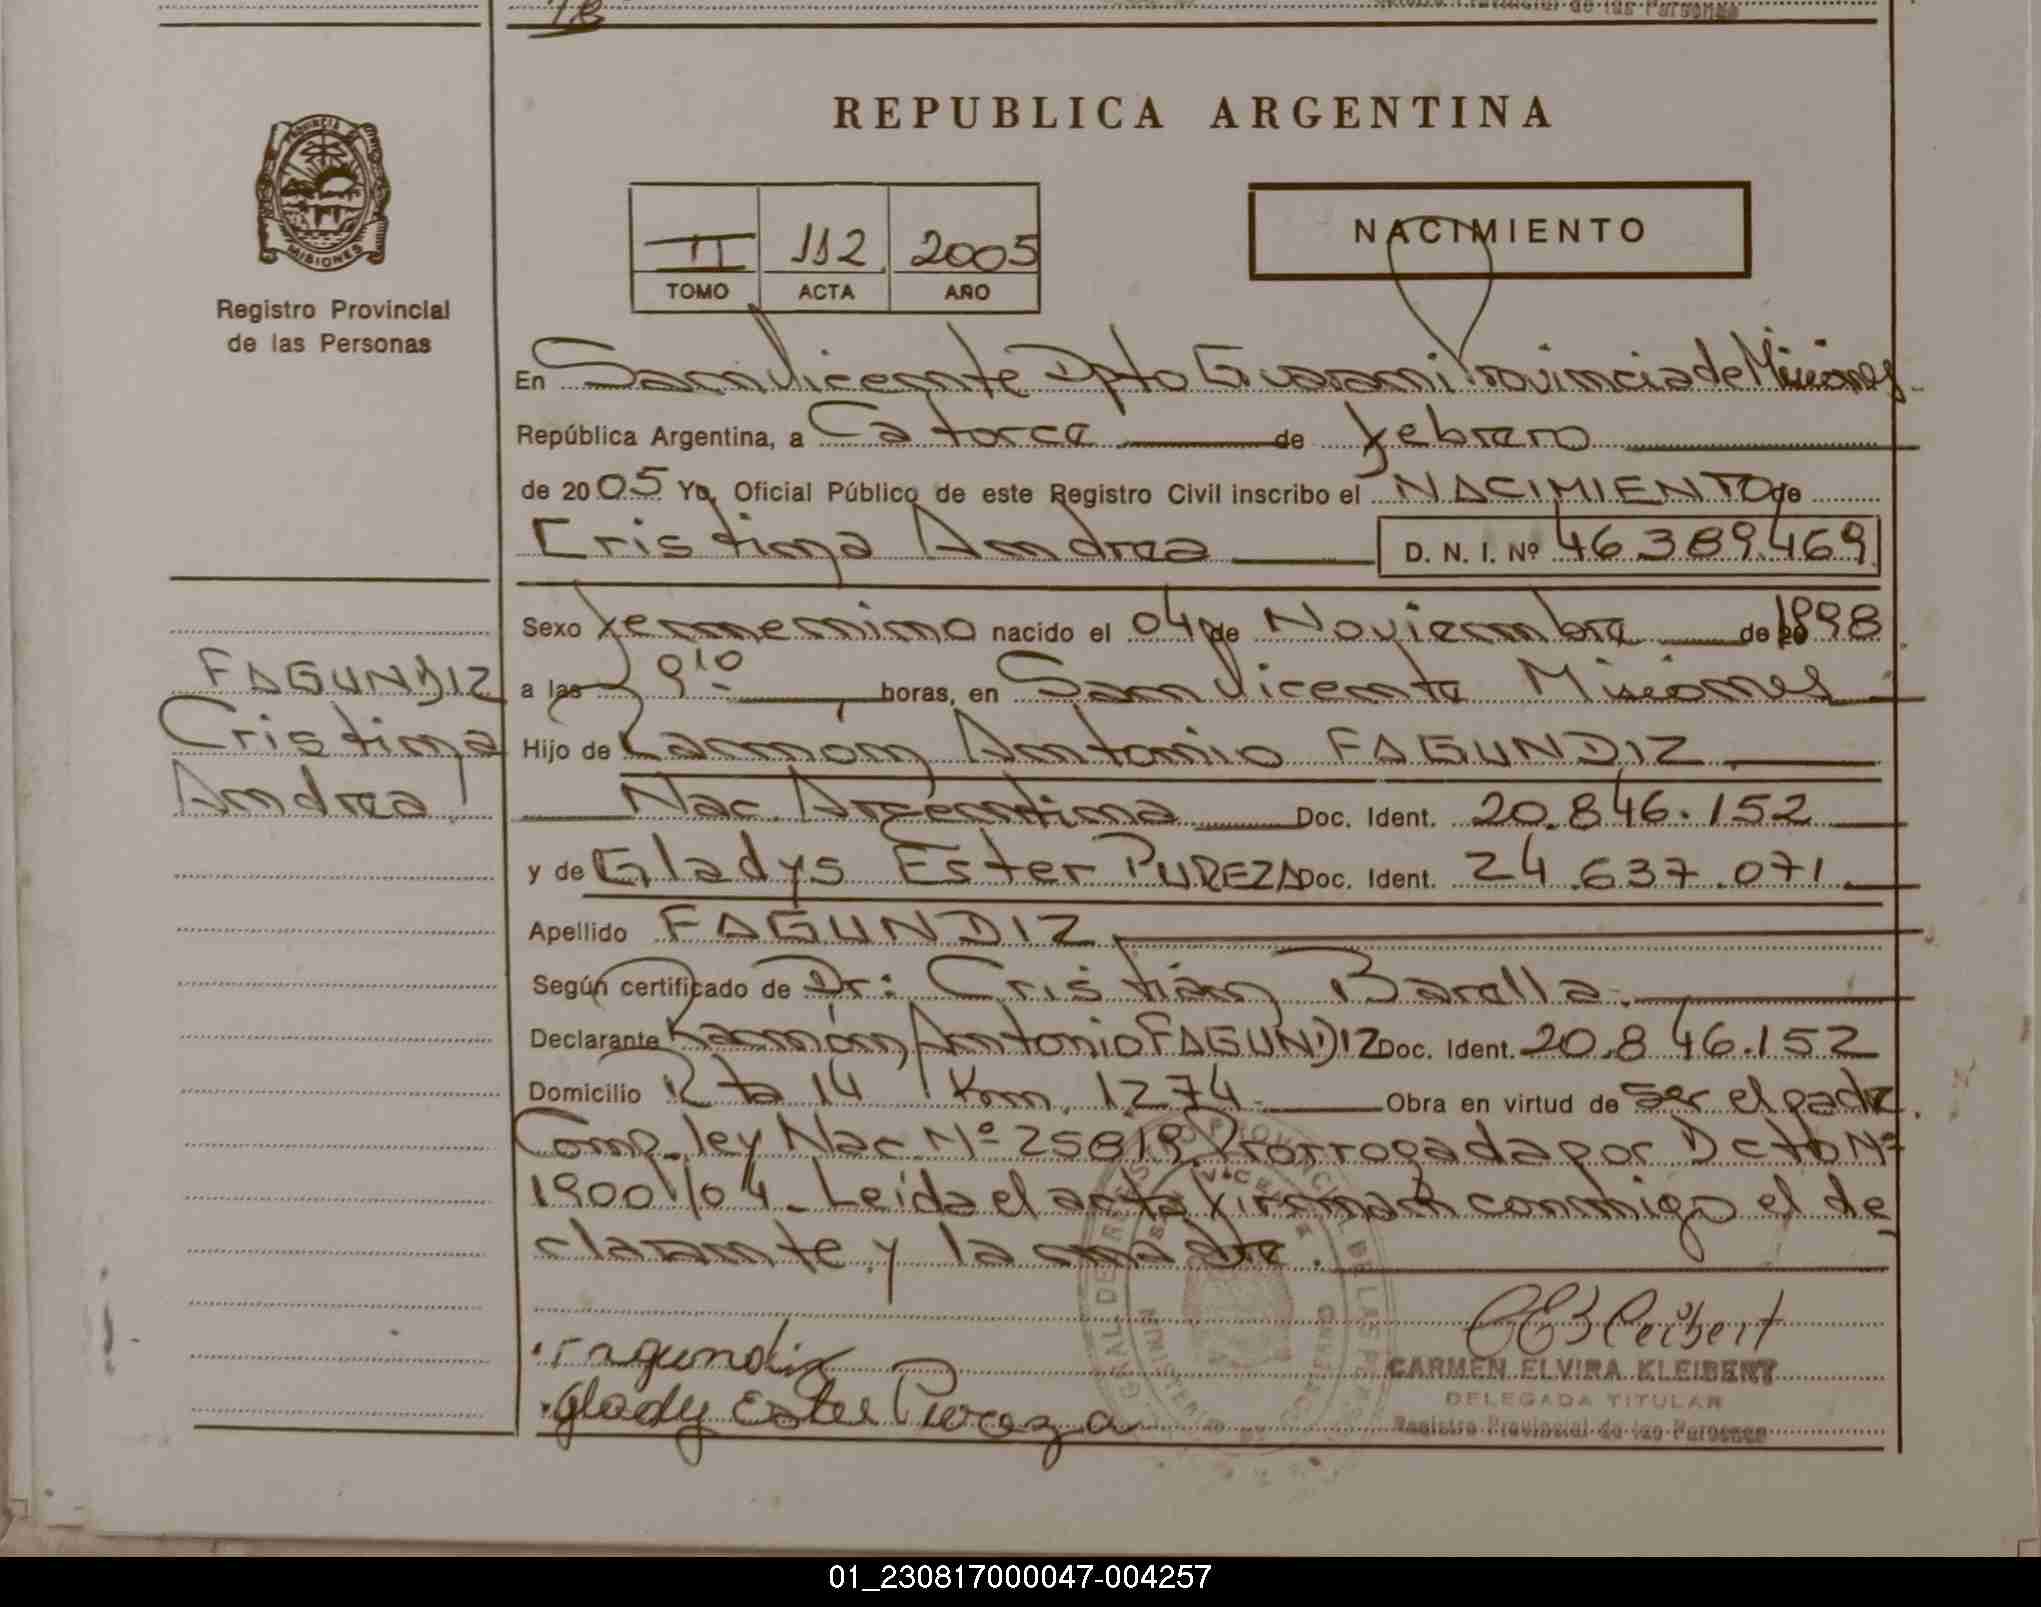 REPUBLICA ARGENTINA
PROVINCIA DE
MISIONES
Registro Provincial
de las Personas
II 112 2005
TOMO ACTA AÑO
NACIMIENTO
En San Vicente Dpto Guarani Provincia de Misiones
República Argentina, a Catorce de febrero
de 2005 Yo, Oficial Público de este Registro Civil inscribo el NACIMIENTO de
Cristina Andrea D. N. I. Nº 46.389.469
Sexo femenino nacido el 04 de Noviembre de 1998
a las 9:10 horas, en San Vicente Misiones
FAGUNDIZ
Cristina
Andrea
Hijo de Ramón Antonio FAGUNDIZ
Nac. Argentina Doc. Ident. 20.846.152
y de Gladys Ester PUREZA Doc. Ident. 24.637.071
Apellido FAGUNDIZ
Según certificado de Dr: Cristián Baralla
Declarante Ramón Antonio FAGUNDIZ Doc. Ident. 20.846.152
Domicilio Rta 14 Km. 1274 Obra en virtud de ser el padre
Comp. ley Nac. Nº 25819 Prorrogada por Dcto Nº
1900/04. Leída el acta firman conmigo el de
clarante y la madre.
Fagundiz
Glady Ester Pureza
CARMEN ELVIRA KLEIBERT
DELEGADA TITULAR
Registro Provincial de las Personas
01_230817000047-004257